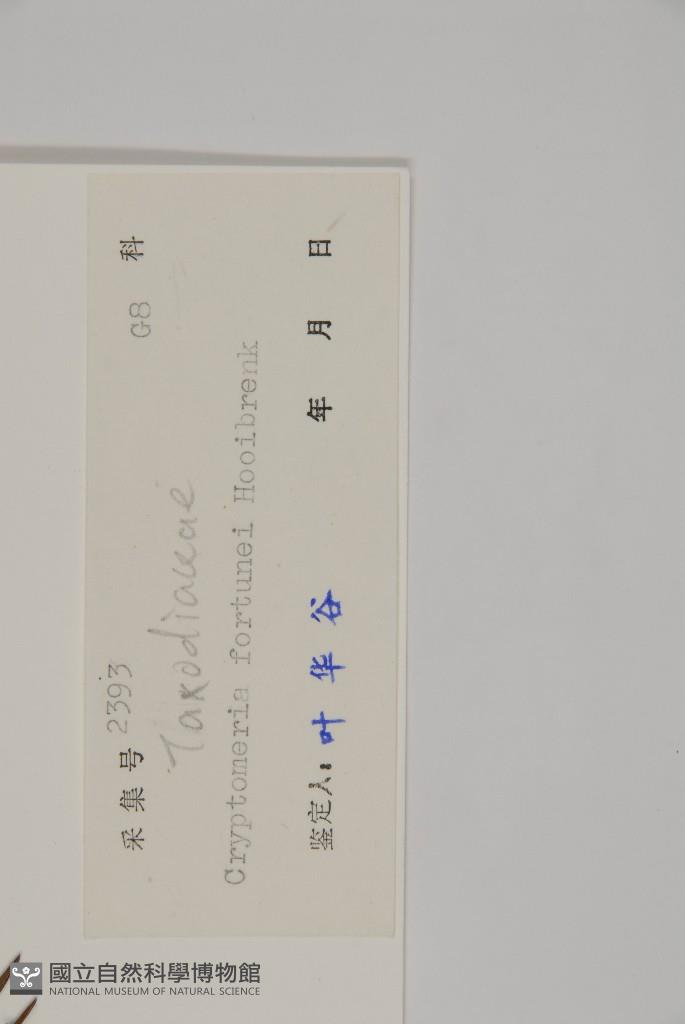 采集号 2393 G8 科
Taxodiaceae
Cryptomeria fortunei Hooibrenk
鉴定人: 叶华谷 年 月 日
國立自然科學博物館
NATIONAL MUSEUM OF NATURAL SCIENCE